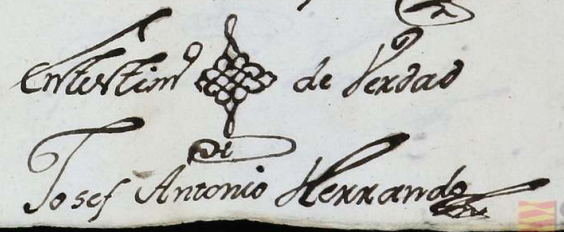 Entestimº de Verdad
Dr
Josef Antonio Herrando